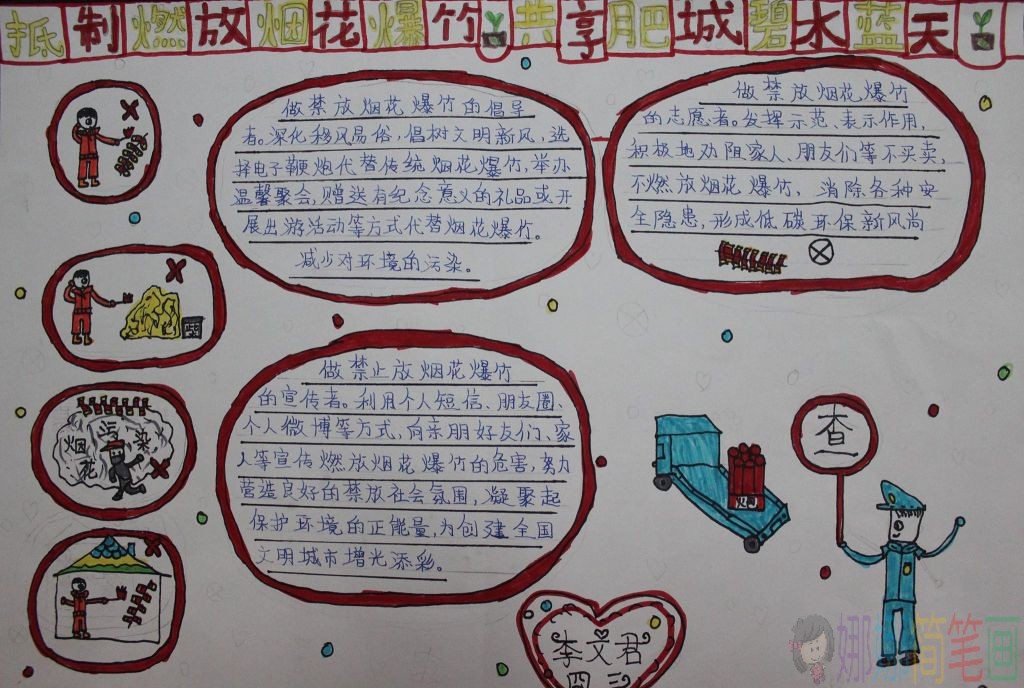 抵制燃放烟花爆竹共享肥城碧水蓝天
做禁放烟花爆竹的倡导
者。深化移风易俗，倡树文明新风，选
择电子鞭炮代替传统烟花爆竹，举办
温馨聚会，赠送有纪念意义的礼品或开
展出游活动等方式代替烟花爆竹。
减少对环境的污染。
做禁放烟花爆竹
的志愿者。发挥示范、表示作用，
积极地劝阻家人、朋友们等不买卖，
不燃放烟花爆竹，消除各种安
全隐患，形成低碳环保新风尚
做禁止放烟花爆竹
的宣传者。利用个人短信、朋友圈、
个人微博等方式，向亲朋好友们、家
人等宣传燃放烟花爆竹的危害，努力
营造良好的禁放社会氛围，凝聚起
保护环境的正能量，为创建全国
文明城市增光添彩。
烟花污染
查
李文君
四三
娜娜简笔画